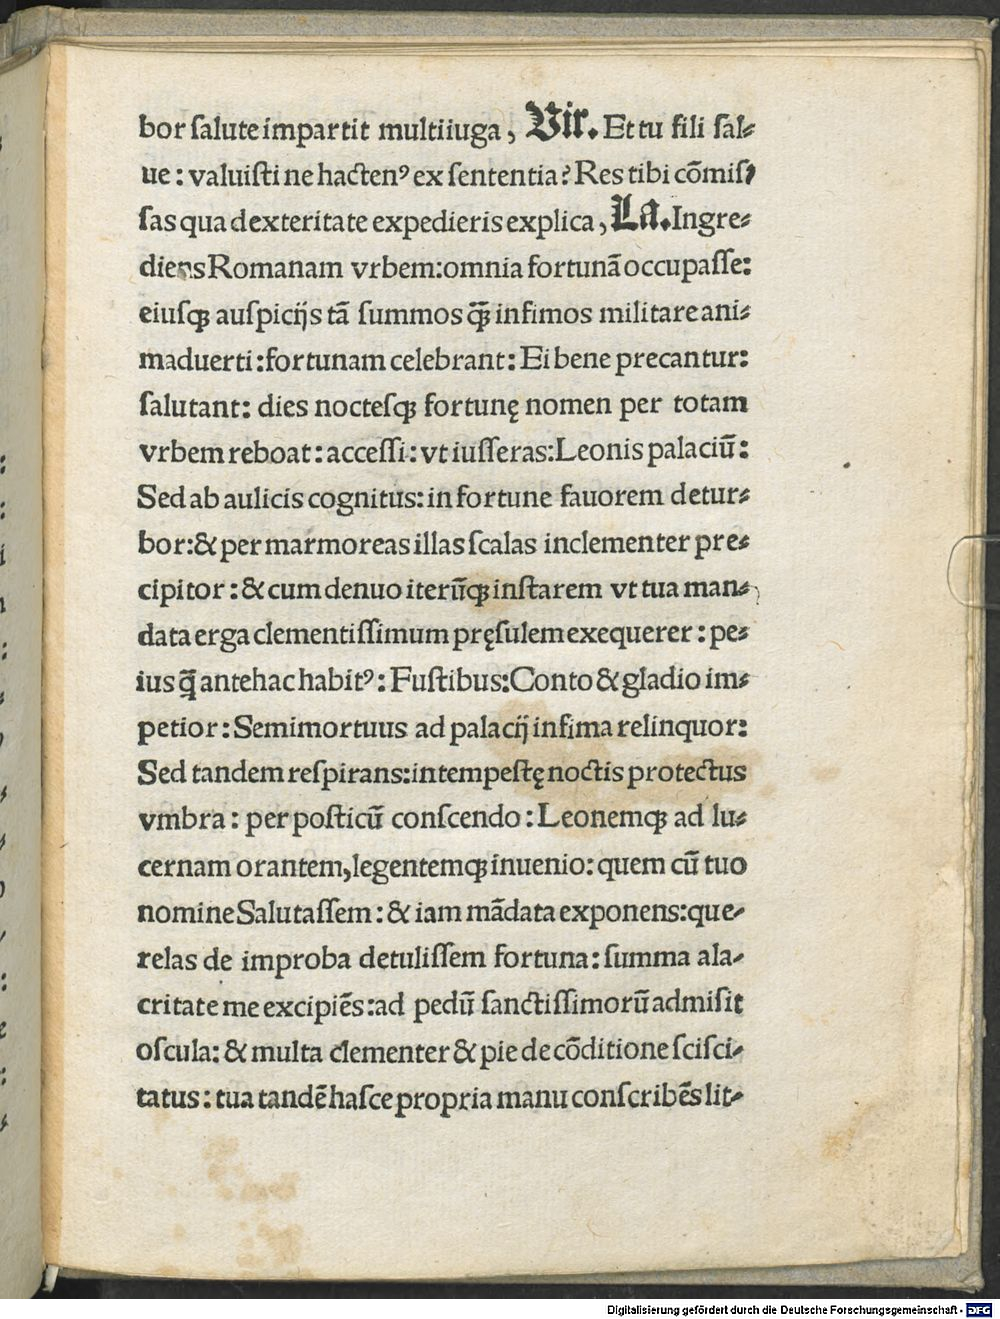 bor ſalute impartit multiiuga, Vir. Et tu fili ſal⸗
ue: valuiſti ne hactenꝰ ex ſententia? Res tibi cōmiſ⸗
ſas qua dexteritate expedieris explica, La. Ingre⸗
diens Romanam vrbem: omnia fortunā occupaſſe:
eiuſqꝫ auſpicijs tā ſummos qꝫ̄ infimos militare ani⸗
maduerti: fortunam celebrant: Ei bene precantur:
ſalutant: dies nocteſqꝫ fortunę nomen per totam
vrbem reboat: acceſſi: vt iuſſeras: Leonis palaciū:
Sed ab aulicis cognitus: in fortune fauorem detur⸗
bor: & per marmoreas illas ſcalas inclementer pre⸗
cipitor: & cum denuo iterūqꝫ inſtarem vt tua man⸗
data erga clementiſſimum pręſulem exequerer: pe⸗
ius q̄ꝫ antehac habitꝰ: Fuſtibus: Conto & gladio im⸗
petior: Semimortuus ad palacij infima relinquor:
Sed tandem reſpirans: intempeſtę noctis protectus
vmbra: per poſticū conſcendo: Leonemqꝫ ad lu⸗
cernam orantem, legentemqꝫ inuenio: quem cū tuo
nomine Salutaſſem: & iam mādata exponens: que⸗
relas de improba detuliſſem fortuna: ſumma ala⸗
critate me excipiēs: ad pedū ſanctiſſimorū admiſit
oſcula: & multa clementer & pie de cōditione ſciſci⸗
tatus: tua tandē haſce propria manu conſcribēs lit⸗
Digitalisierung gefördert durch die Deutsche Forschungsgemeinschaft - DFG